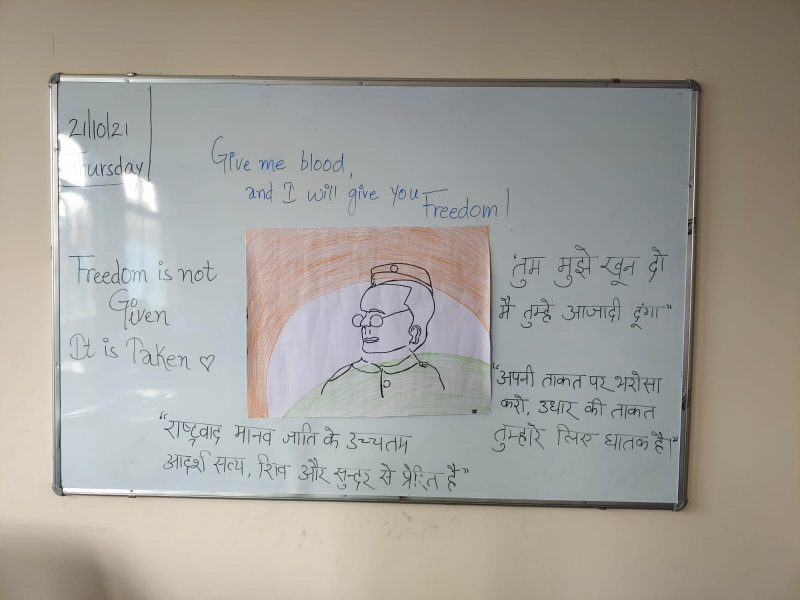 21/10/21
Thursday
Give me blood,
and I will give you Freedom!
Freedom is not
Given
It is Taken ♡
'तुम मुझे खून दो
मै तुम्हें आजादी दूंगा"
"अपनी ताकत पर भरोसा
करो, उधार की ताकत
तुम्हारे लिए घातक है।"
"राष्ट्रवाद मानव जाति के उच्चतम
आदर्श सत्य, शिव और सुन्दर से प्रेरित है"